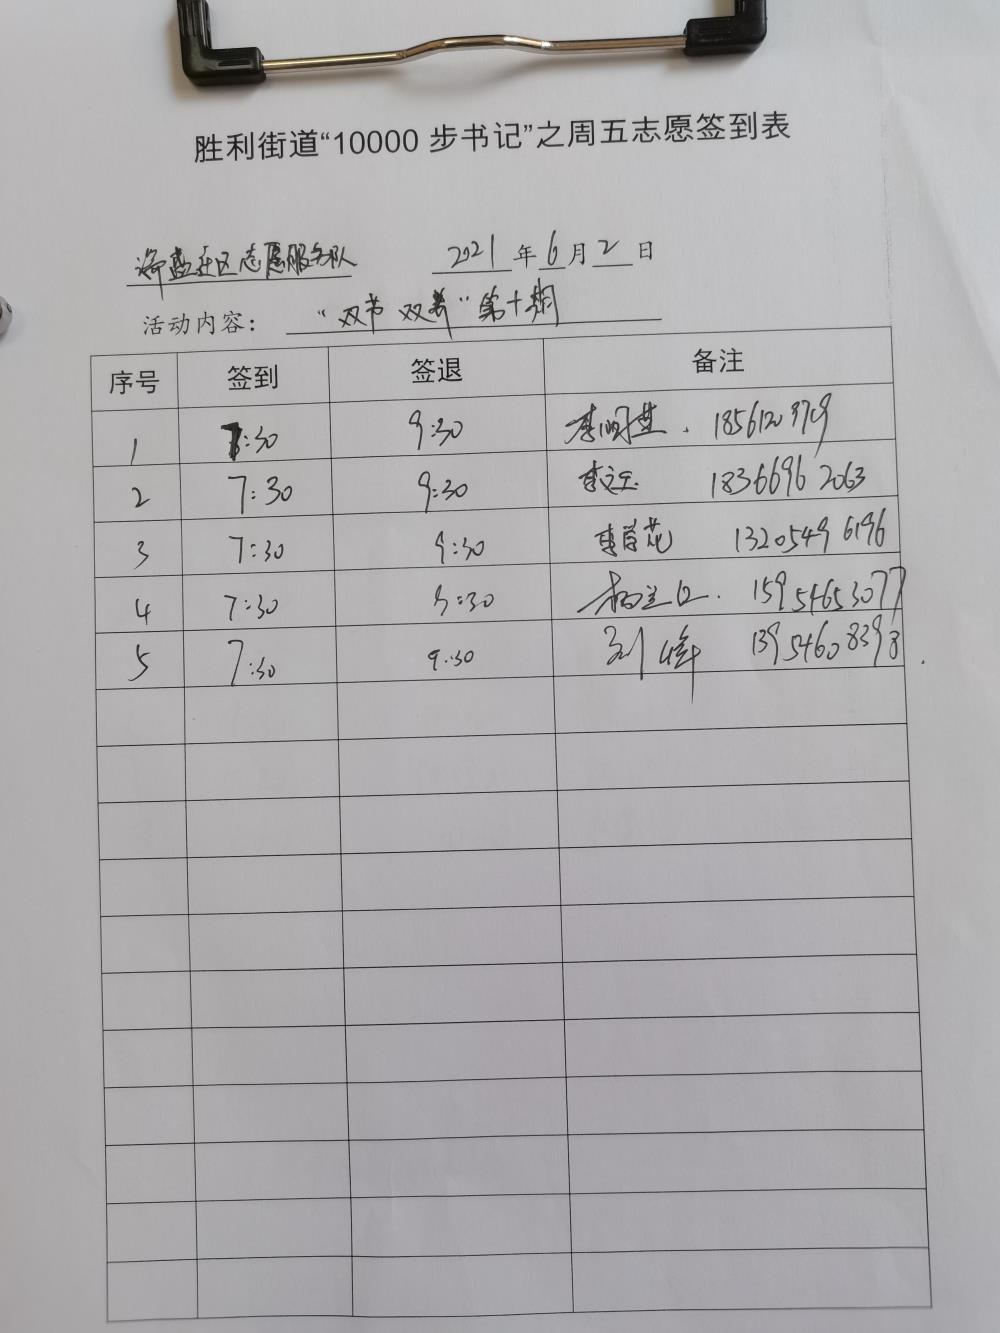 胜利街道“10000 步书记”之周五志愿签到表
海盛社区志愿服务队 2021 年 6 月 2 日
活动内容： “双节 双养” 第十期
序号 签到 签退 备注
1 7:30 9:30
2 7:30 9:30 18366962063
3 7:30 9:30 13205496196
4 7:30 9:30 15954653077
5 7:30 9:30 刘峰 13954608398